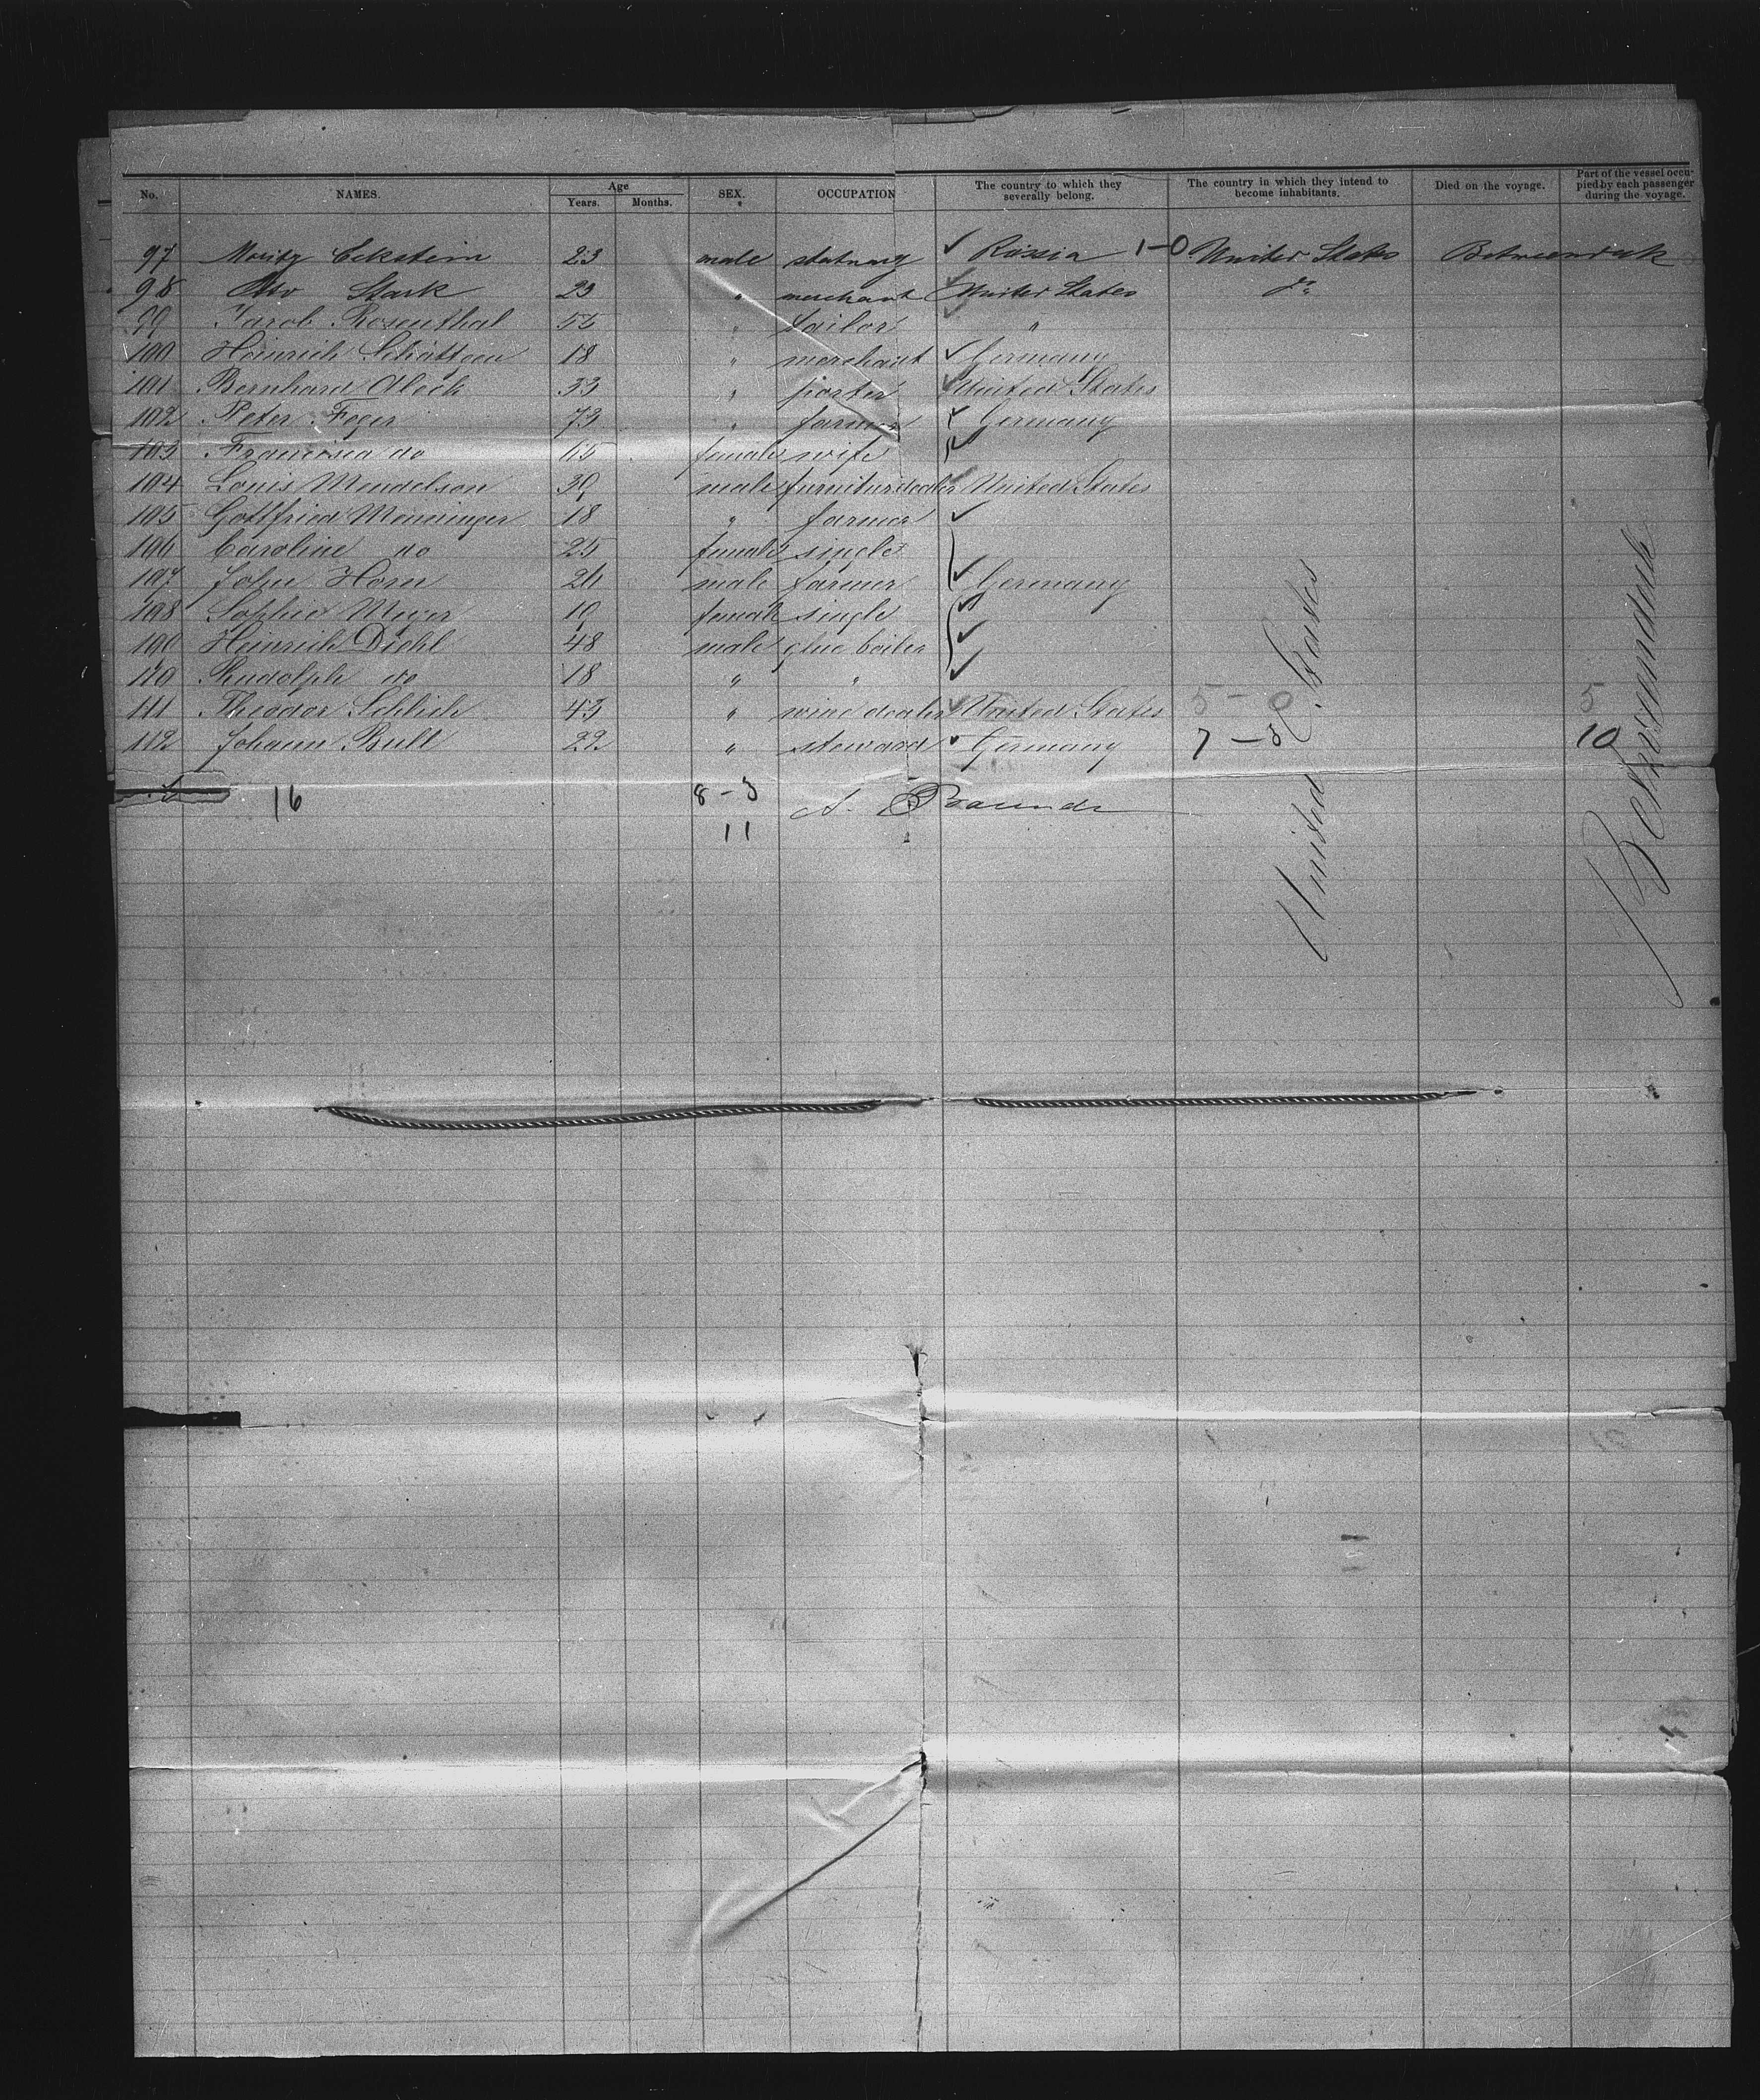 No. NAMES. Age Years. Months. SEX. OCCUPATION The country to which they severally belong. The country in which they intend to become inhabitants. Died on the voyage. Part of the vessel occupied by each passenger during the voyage.
97 Moritz Eckstein 23 male ✓ Russia 1-0 United States Betweendeck
98 Stark 23 " merchant ✓ United States do
99 Jacob Rosenthal 55 " tailor ✓ "
100 Heinrich Schöttgen 18 " merchant ✓ Germany
101 Bernhard Aleck 33 " porter ✓ United States
102 Peter Feger 73 " farmer ✓ Germany
103 do 65 female wife ✓
104 Louis Mendelson 39 male furniture dealer ✓ United States
105 Gottfried Menninger 18 " farmer ✓
106 Caroline do 25 female single
107 John Horn 26 male farmer ✓ Germany
108 Sophie Meyer 19 female single ✓
109 Heinrich Diehl 48 male glue boiler ✓
110 Rudolph do 18 " " ✓
111 Theodor Schlich 43 " wine dealer ✓ United States 5-0 5
112 Johann Bull 22 " steward ✓ Germany 7-3 10
United States
Betweendeck
16 8-3
11